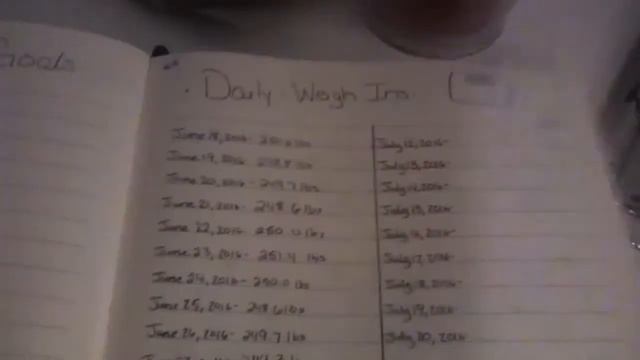 Goals
Daily Weigh Ins
June 18, 2016 - 250.6 lbs
June 19, 2016 - 248.8 lbs
June 20, 2016 - 249.7 lbs
June 21, 2016 - 248.6 lbs
June 22, 2016 - 250.0 lbs
June 23, 2016 - 251.4 lbs
June 24, 2016 - 250.0 lbs
June 25, 2016 - 248.6 lbs
June 26, 2016 - 249.7 lbs
July 12, 2016 -
July 13, 2016
July 14, 2016 -
July 15, 2016
July 16, 2016 -
July 17, 2016 -
July 18, 2016 -
July 19, 2016 -
July 20, 2016